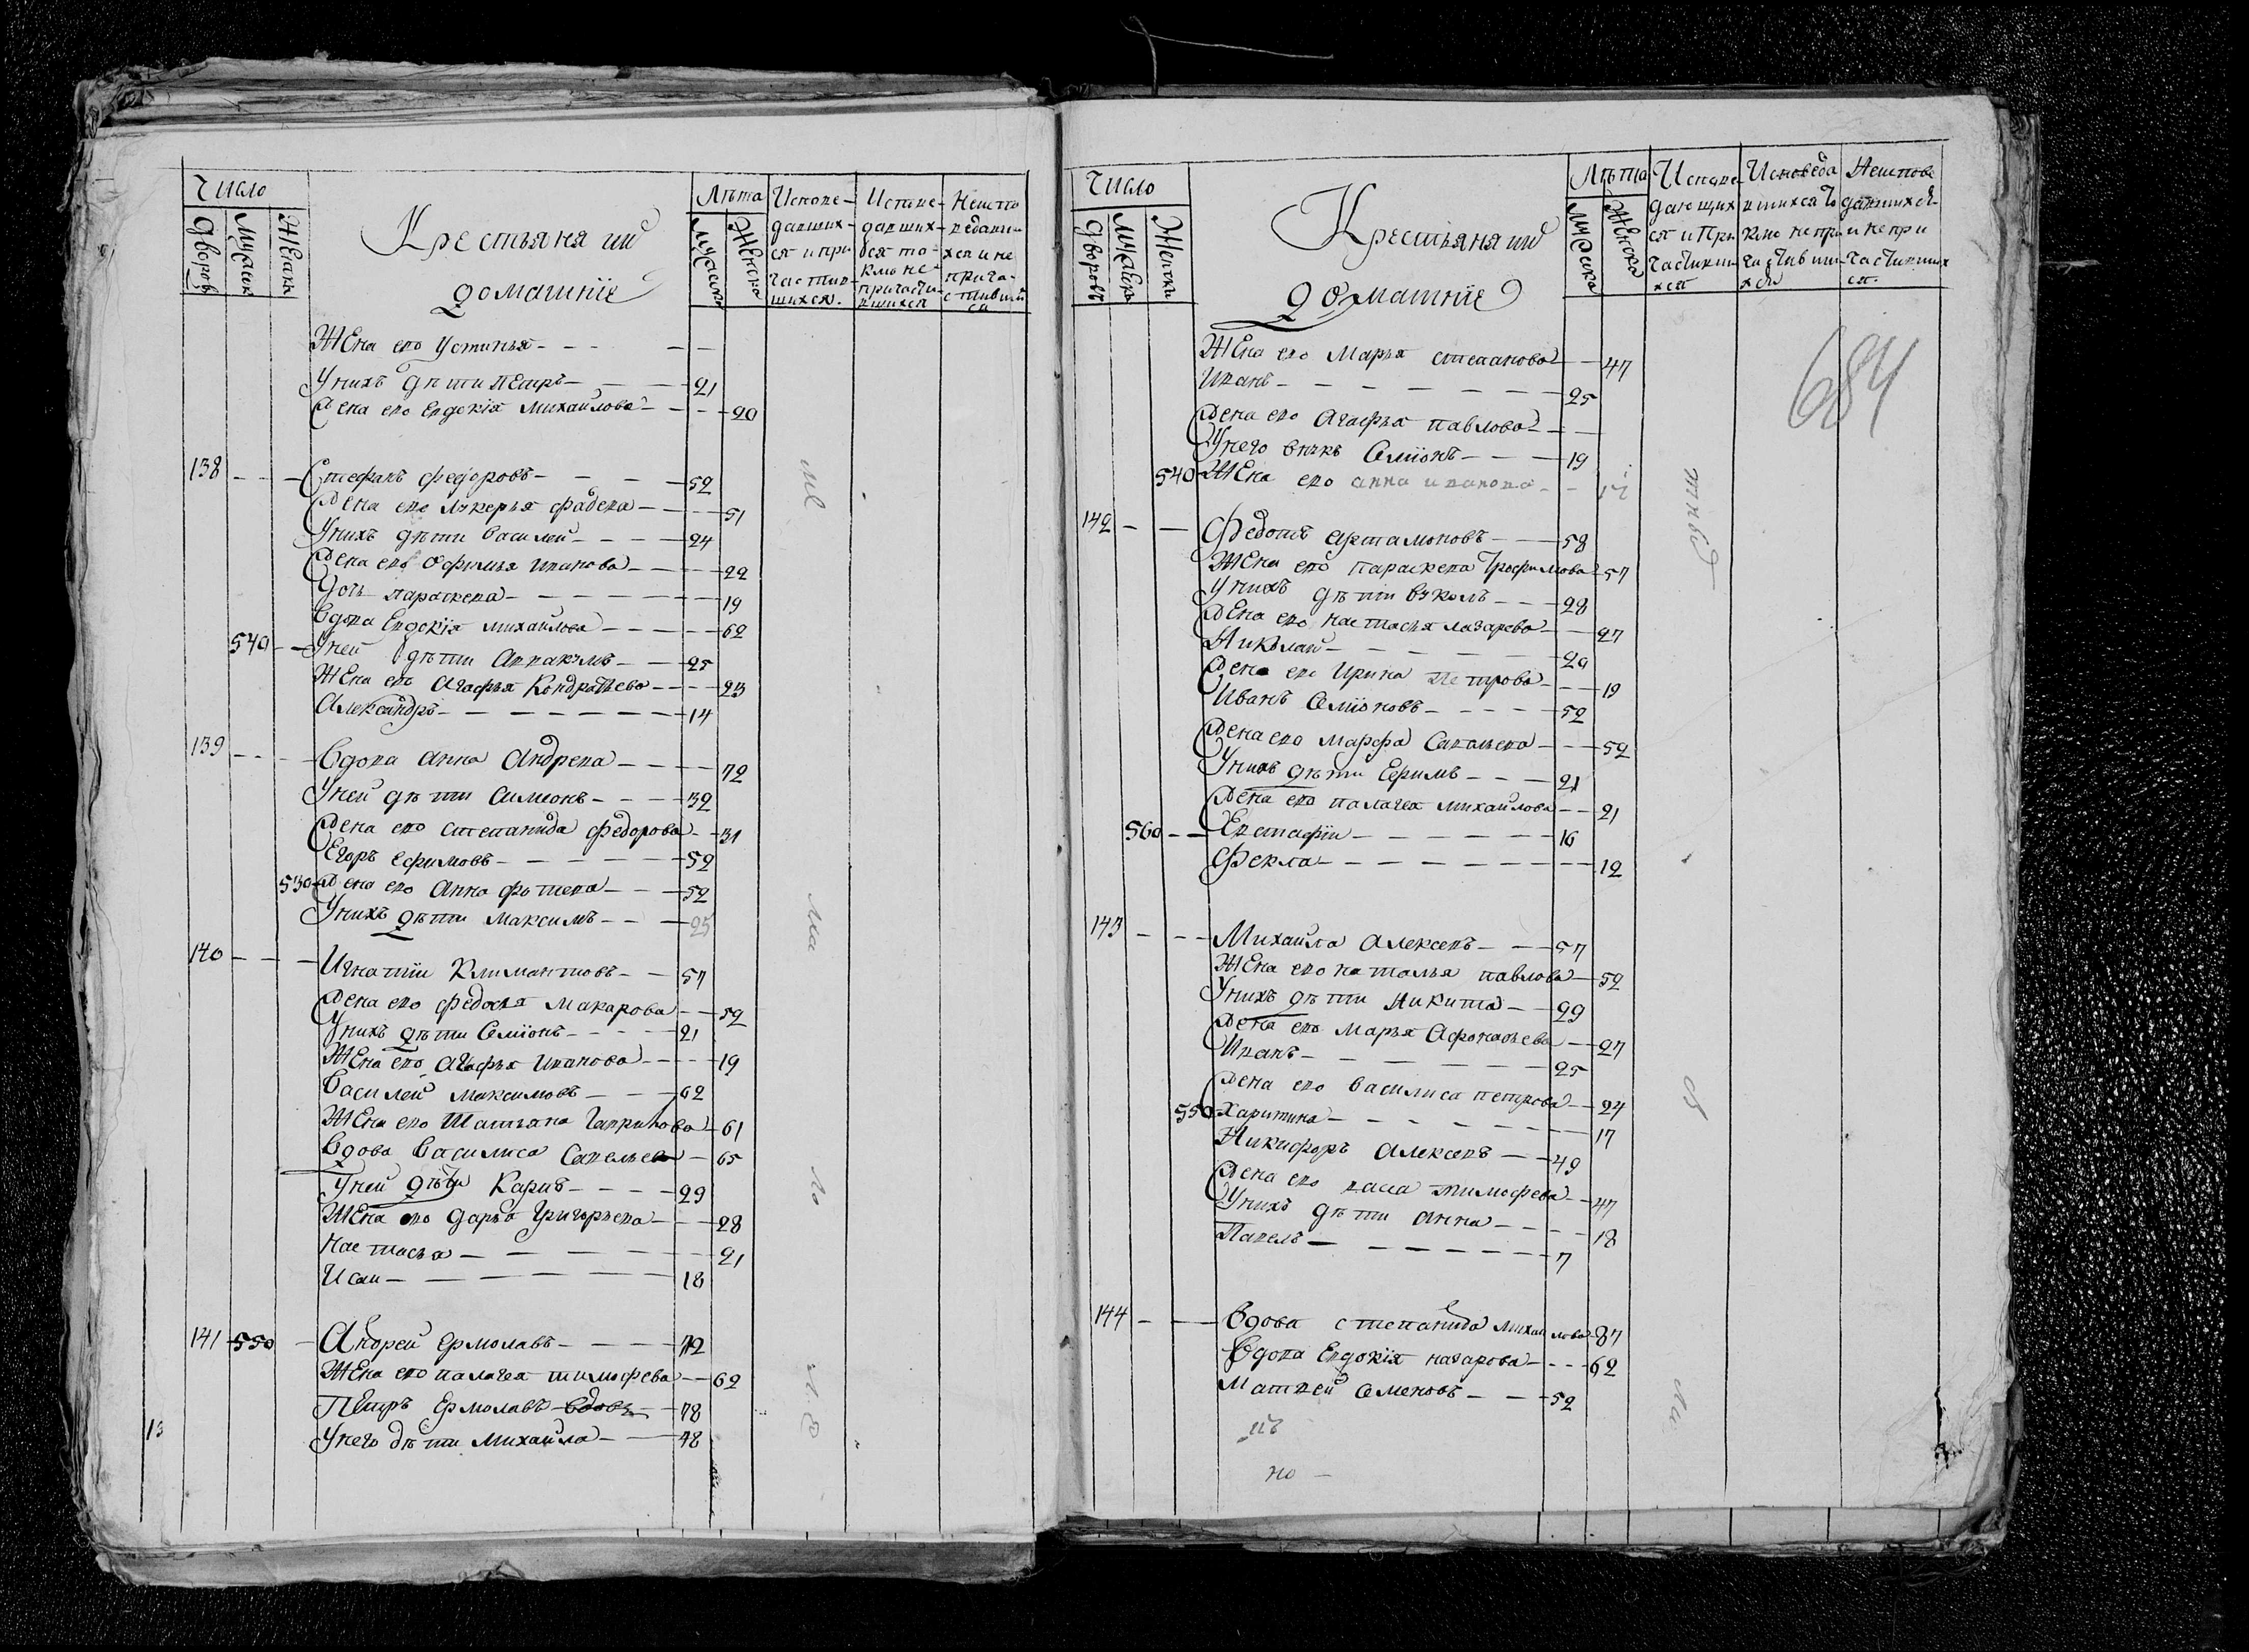 Число
Дворовъ Мужеск Женски
Крестьяня ии
домашнїе
Лѣта
Мужеска Женска
Исповедавших-
ся и при-
частив-
шихся.
Исповедавших-
ся то-
кмо не-
причасти-
вшихся
Неиспо
ведавши
хся и не
прича-
стивши
ся
Жена ево Устинья - - - -
Унихъ дѣти Петръ - - 21
Жена ево Евдокїя Михайлова - - - 20
138 - - - Стефанъ Федоровъ - - - 52
Жена ево Лукерья Фадеева - - - 51
Унихъ дѣти Василей - - - 24
Жена ево Офимья Иванова - - - 22
Дочь Параскева - - - - - - 19
Вдова Евдокїя Михайлова - - - - 62
540 - - Уней дѣти Аввакумъ - - 25
Жена ево Агафья Кондратьева - - - 23
Александръ - - - - - - - 14
139 - - - Вдова Анна Андреева - - - - 72
Уней дѣти Симеонъ - - - 32
Жена ево Степанида Федорова - - 31
Егоръ Ефимовъ - - - - - - 52
530 Жена ево Анна - - - 52
Унихъ дѣти Максимъ - - - 25
140 - - - Игнатїи Климантовъ - - 57
Жена ево Федосья Макарова - - 52
Унихъ дѣти Семїонъ - - - - 21
Жена ево Агафья Иванова - - - - 19
Василей Максимовъ - - - 62
Жена ево Татьяна Гаврилова - 61
Вдова Василиса Савельева - 65
Уней дѣти Карпъ - - - - 29
Жена ево Дарья Григорьева - - - 28
Настасья - - - - - - 21
Исаи - - - - - - 18
141 550 - Андрей Ермолавъ - - - - 72
Жена ево Палагея Тимофева - - 62
Петръ Ермолавъ вдовъ - - 78
13 Унего дѣти Михайла - - 48
Число
Дворовъ Мужескъ Женски
Крестьяня ии
домашнїе
Лѣта
Мужска Женска
Исповедающих
ся и При
частивши
хся
Исповеда
вшихся то
кмо непри
частивши
хся
Неиспове
давшихся
и непри
частивших
ся.
684
Жена ево Марья Степанова - - 47
Иванъ - - - - - - - 25
Жена ево Агафья Павлова - - -
Унего внукъ Семїонъ - - - 19
540 Жена ево Анна Иванова - - 17
142 - - Федотъ Артамоновъ - - - 58
Жена ево Параскева Трофимова - 57
Унихъ дѣти Вуколъ - - - 28
Жена ево Настасья Лазарева - - 27
Николай - - - - - - 20
Жена ево Ирина Петрова - - - 19
Иванъ Семїоновъ - - - - - 52
Жена ево Марфа Савельева - - - 52
Унихъ дѣти Ефимъ - - - 21
Жена ево Палагея Михайлова - - 21
560 - - Евстафїи - - - - - - - 16
Фекла - - - - - - - - - 12
143 - - - Михайла Алексевъ - - - 57
Жена ево Наталья Павлова - 52
Унихъ дѣти Никита - - 29
Жена ево Марья Афонасьева - - 27
Иванъ - - - - - - - 25
Жена ево Василиса Петрова - - 24
550 Харитина - - - - - - - - 17
Никифоръ Алексевъ - - - 49
Жена ево Васса Тимофева - - 47
Унихъ дѣти Анна - - - - 18
Павелъ - - - - - - - 7
144 - - Вдова Степанида Михайлова 87
Вдова Евдокїя Назарова - - - - 62
Матвей Семеновъ - - - 52
но -